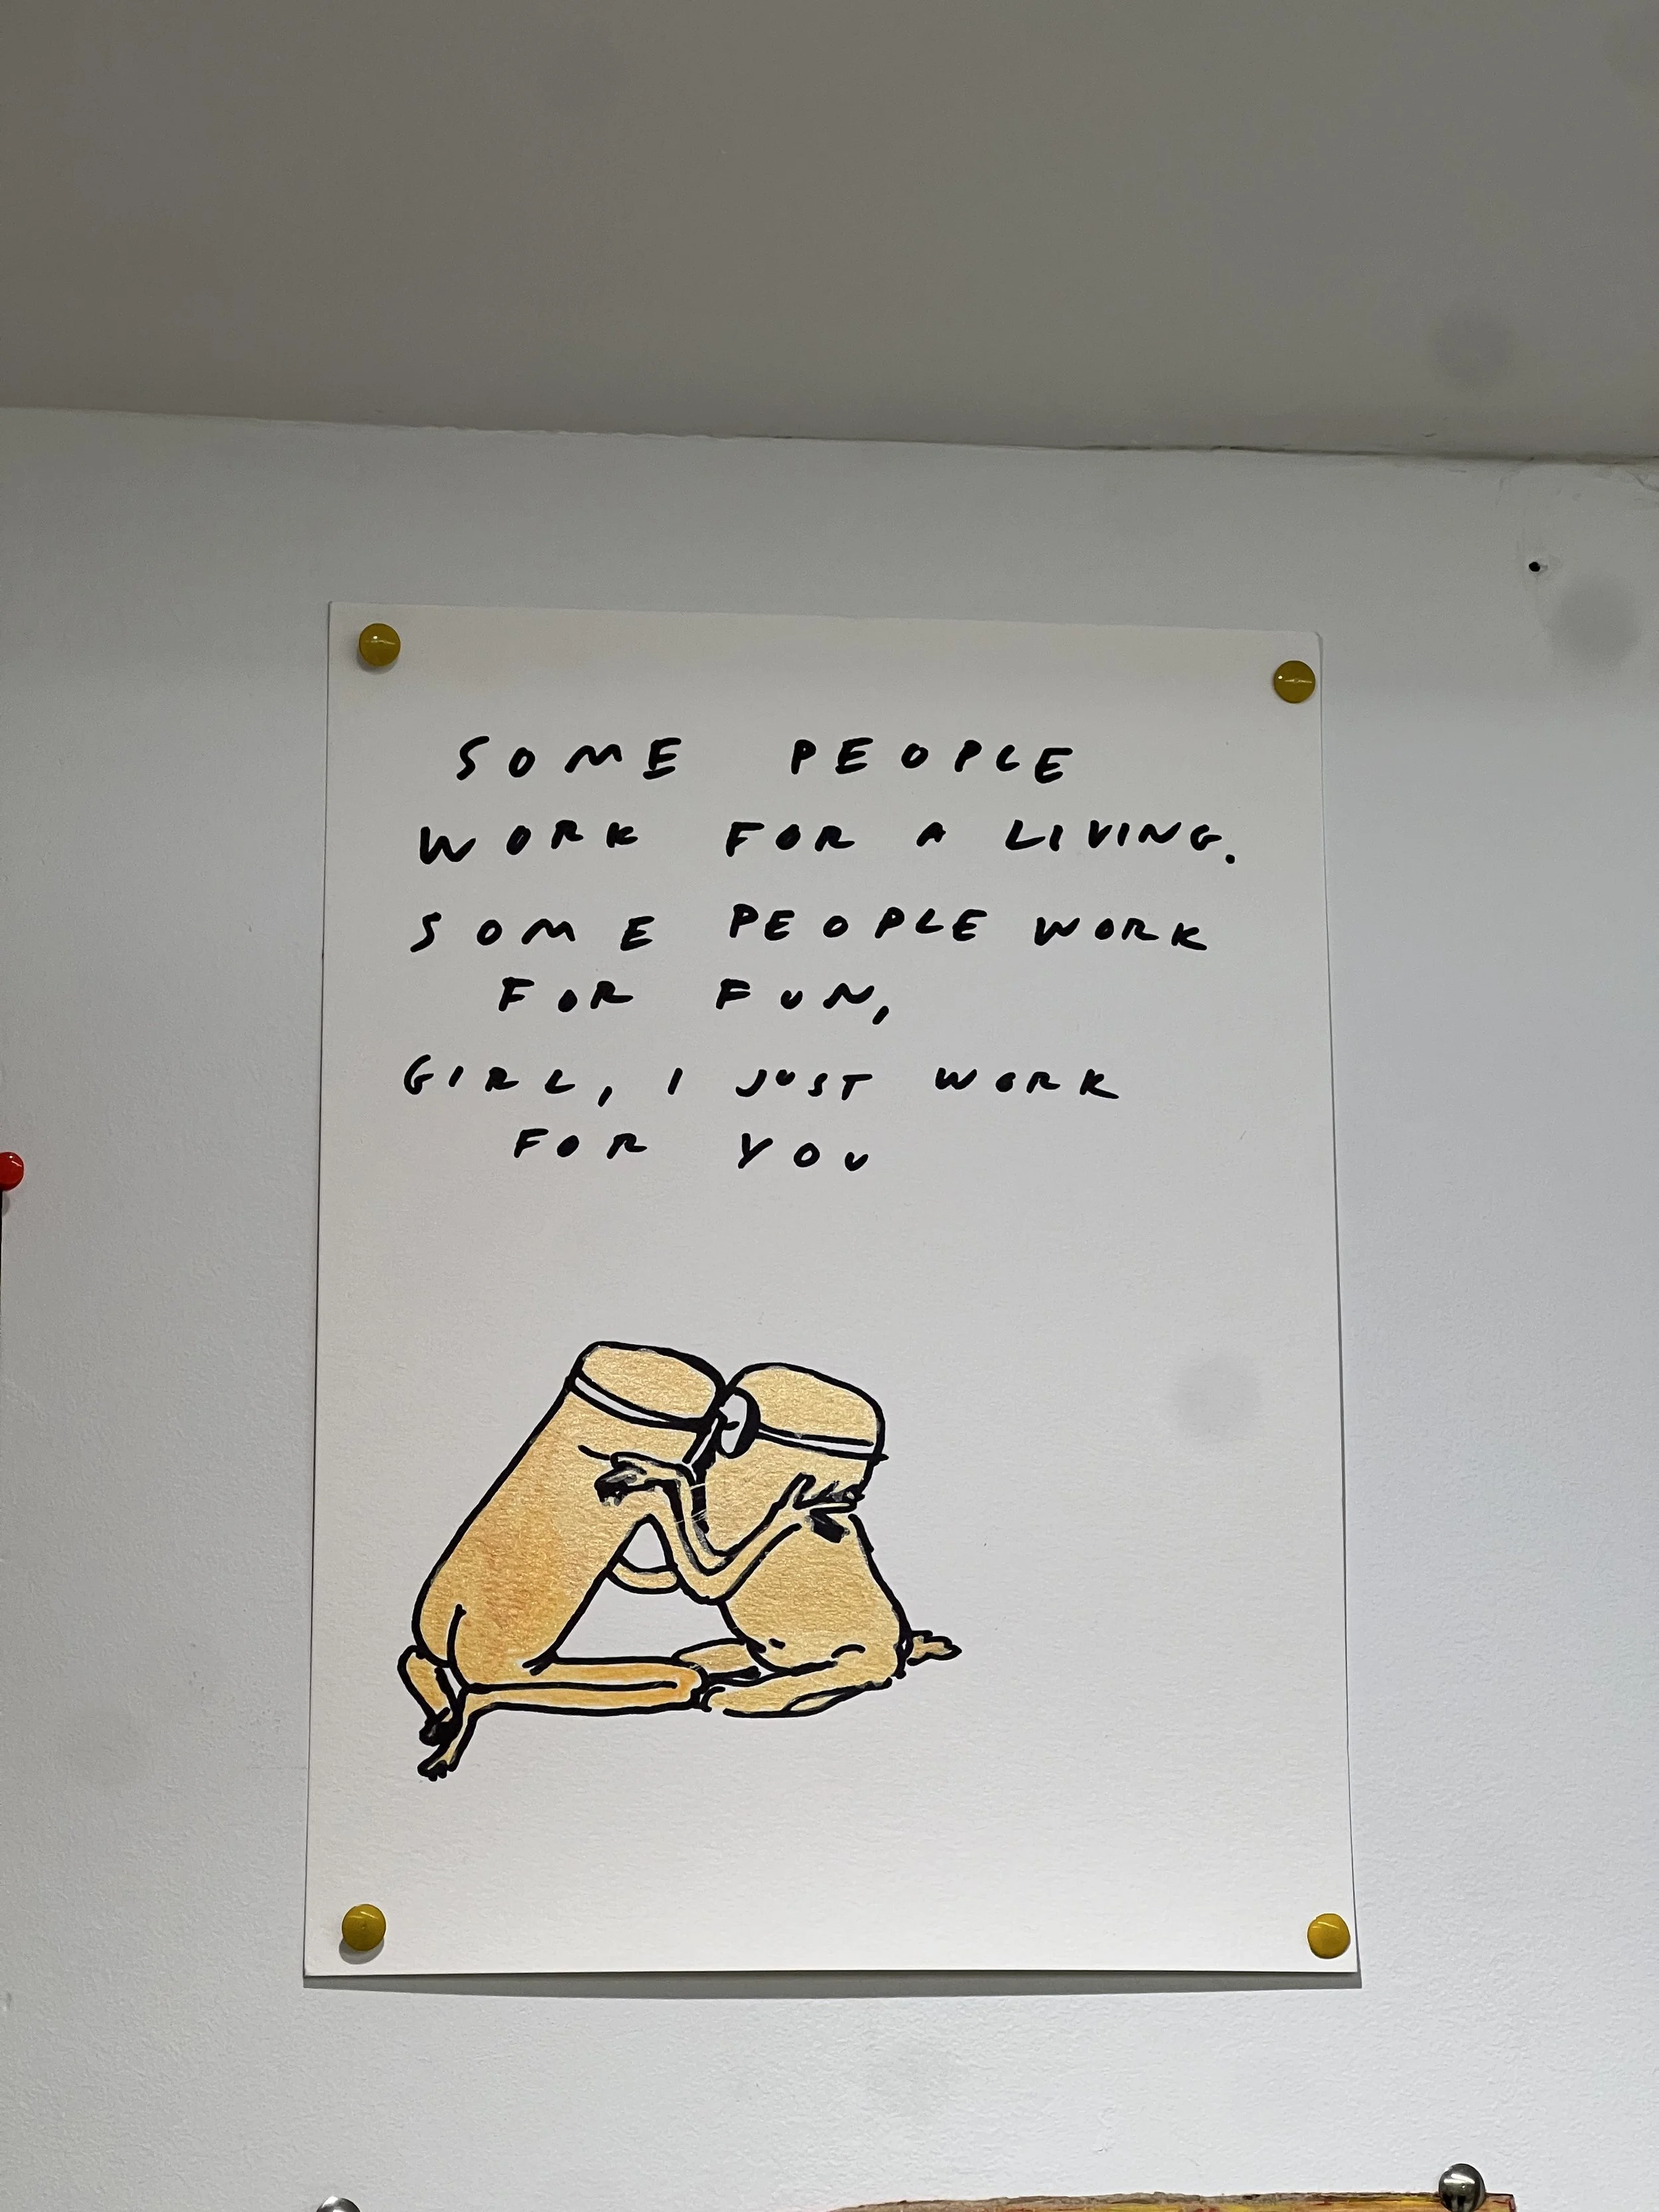 SOME PEOPLE
WORK FOR A LIVING.
SOME PEOPLE WORK
FOR FUN,
GIRL, I JUST WORK
FOR YOU